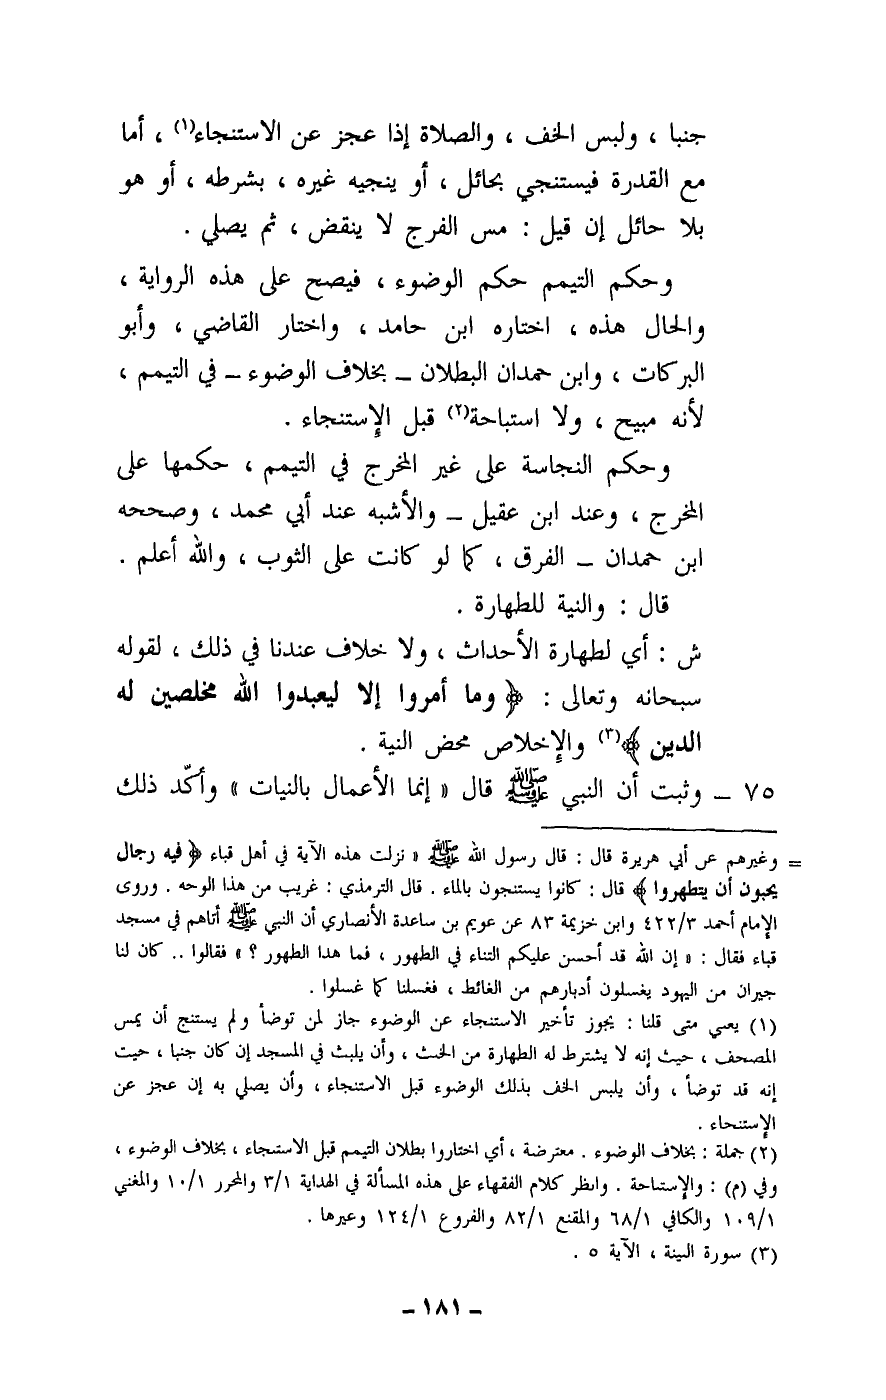 جنبا ، ولبس الخف ، والصلاة إذا عجز عن الاستنجاء(١) ، أما
مع القدرة فيستنجي بحائل ، أو ينجيه غيره ، بشرطه ، أو هو
بلا حائل إن قيل : مس الفرج لا ينقض ، ثم يصلي .
وحكم التيمم حكم الوضوء ، فيصح على هذه الرواية ،
والحال هذه ، اختاره ابن حامد ، واختار القاضي ، وأبو
البركات ، وابن حمدان البطلان ــ بخلاف الوضوء ــ في التيمم ،
لأنه مبيح ، ولا استباحة(٢) قبل الإستنجاء .
وحكم النجاسة على غير المخرج في التيمم ، حكمها على
المخرج ، وعند ابن عقيل ــ والأشبه عند أبي محمد ، وصححه
ابن حمدان ــ الفرق ، كما لو كانت على الثوب ، والله أعلم .
قال : والنية للطهارة .
ش : أي لطهارة الأحداث ، ولا خلاف عندنا في ذلك ، لقوله
سبحانه وتعالى : ﴿ وما أمروا إلا ليعبدوا الله مخلصين له
الدين ﴾(٣) والإخلاص محض النية .
٧٥ ــ وثبت أن النبي ﷺ قال « إنما الأعمال بالنيات » وأكّد ذلك
= وغيرهم عن أبي هريرة قال : قال رسول الله ﷺ « نزلت هذه الآية في أهل قباء ﴿ فيه رجال
يحبون أن يتطهروا ﴾ قال : كانوا يستنجون بالماء . قال الترمذي : غريب من هذا الوجه . وروى
الإمام أحمد ٤٢٢/٣ وابن خزيمة ٨٣ عن عويم بن ساعدة الأنصاري أن النبي ﷺ أتاهم في مسجد
قباء فقال : « إن الله قد أحسن عليكم الثناء في الطهور ، فما هذا الطهور ؟ » فقالوا .. كان لنا
جيران من اليهود يغسلون أدبارهم من الغائط ، فغسلنا كما غسلوا .
(١) يعني متى قلنا : يجوز تأخير الاستنجاء عن الوضوء جاز لمن توضأ ولم يستنج أن يمس
المصحف ، حيث إنه لا يشترط له الطهارة من الخبث ، وأن يلبث في المسجد إن كان جنبا ، حيث
إنه قد توضأ ، وأن يلبس الخف بذلك الوضوء قبل الاستنجاء ، وأن يصلي به إن عجز عن
الإستنجاء .
(٢) جملة : بخلاف الوضوء . معترضة ، أي اختاروا بطلان التيمم قبل الاستنجاء ، بخلاف الوضوء ،
وفي (م) : والإستباحة . وانظر كلام الفقهاء على هذه المسألة في الهداية ٣/١ والمحرر ١٠/١ والمغني
١٠٩/١ والكافي ٦٨/١ والمقنع ٨٢/١ والفروع ١٢٤/١ وغيرها .
(٣) سورة البينة ، الآية ٥ .
ــ ١٨١ ــ